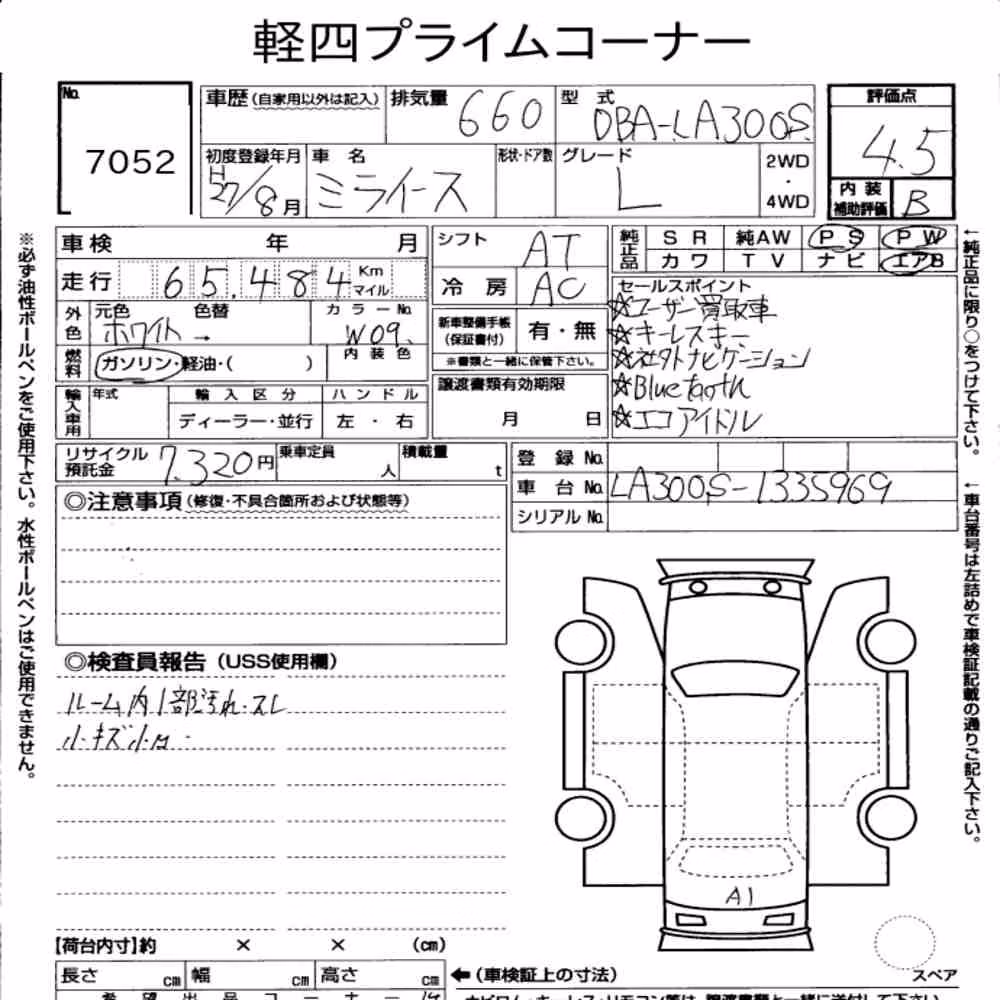 軽四プライムコーナー
No. 7052
車歴(自家用以外は記入)
排気量 660
型 式 DBA-LA300S
評価点 4.5
内装補助評価 B
初度登録年月 H27/8月
車 名 ミライース
形状・ドア数
グレード L
2WD・4WD
車検 年 月
走行 65.484 Km マイル
外色 元色 ホワイト → 色替
カラーNo. W09
燃料 ガソリン・軽油・( )
内装色
輸入車用 年式
輸入区分 ディーラー・並行
ハンドル 左・右
シフト AT
冷房 AC
新車整備手帳(保証書付) 有・無
※書類と一緒に保管下さい。
譲渡書類有効期限
月 日
純正品 SR 純AW PS PW
カワ TV ナビ エアB
セールスポイント
☆ユーザー買取車
☆キーレスキー
☆社外ナビゲーション
☆Bluetooth
☆エコアイドル
リサイクル預託金 7.320円
乗車定員 人
積載量 t
登録No.
車台No. LA300S-1335969
シリアルNo.
◎注意事項(修復・不具合箇所および状態等)
◎検査員報告(USS使用欄)
ルーム内1部汚れ.スレ
小キズ小凹.
A1
スペア
【荷台内寸】約 × × (cm)
長さ cm 幅 cm 高さ cm
←(車検証上の寸法)
※必ず油性ボールペンをご使用下さい。水性ボールペンはご使用できません。
←純正品に限り○をつけて下さい。
←車台番号は左詰めで車検証記載の通りご記入下さい。